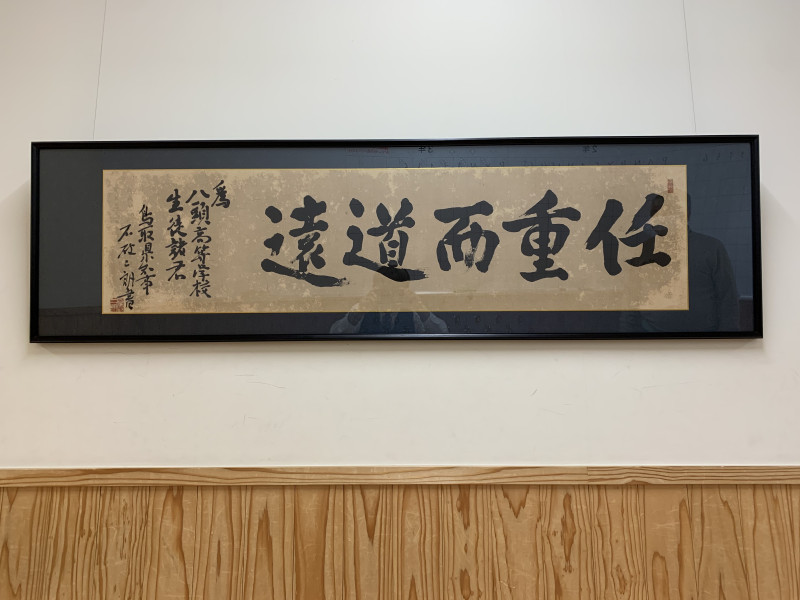 任重而道遠
為
八頭高等学校
生徒諸君
鳥取県知事
石破二朗書